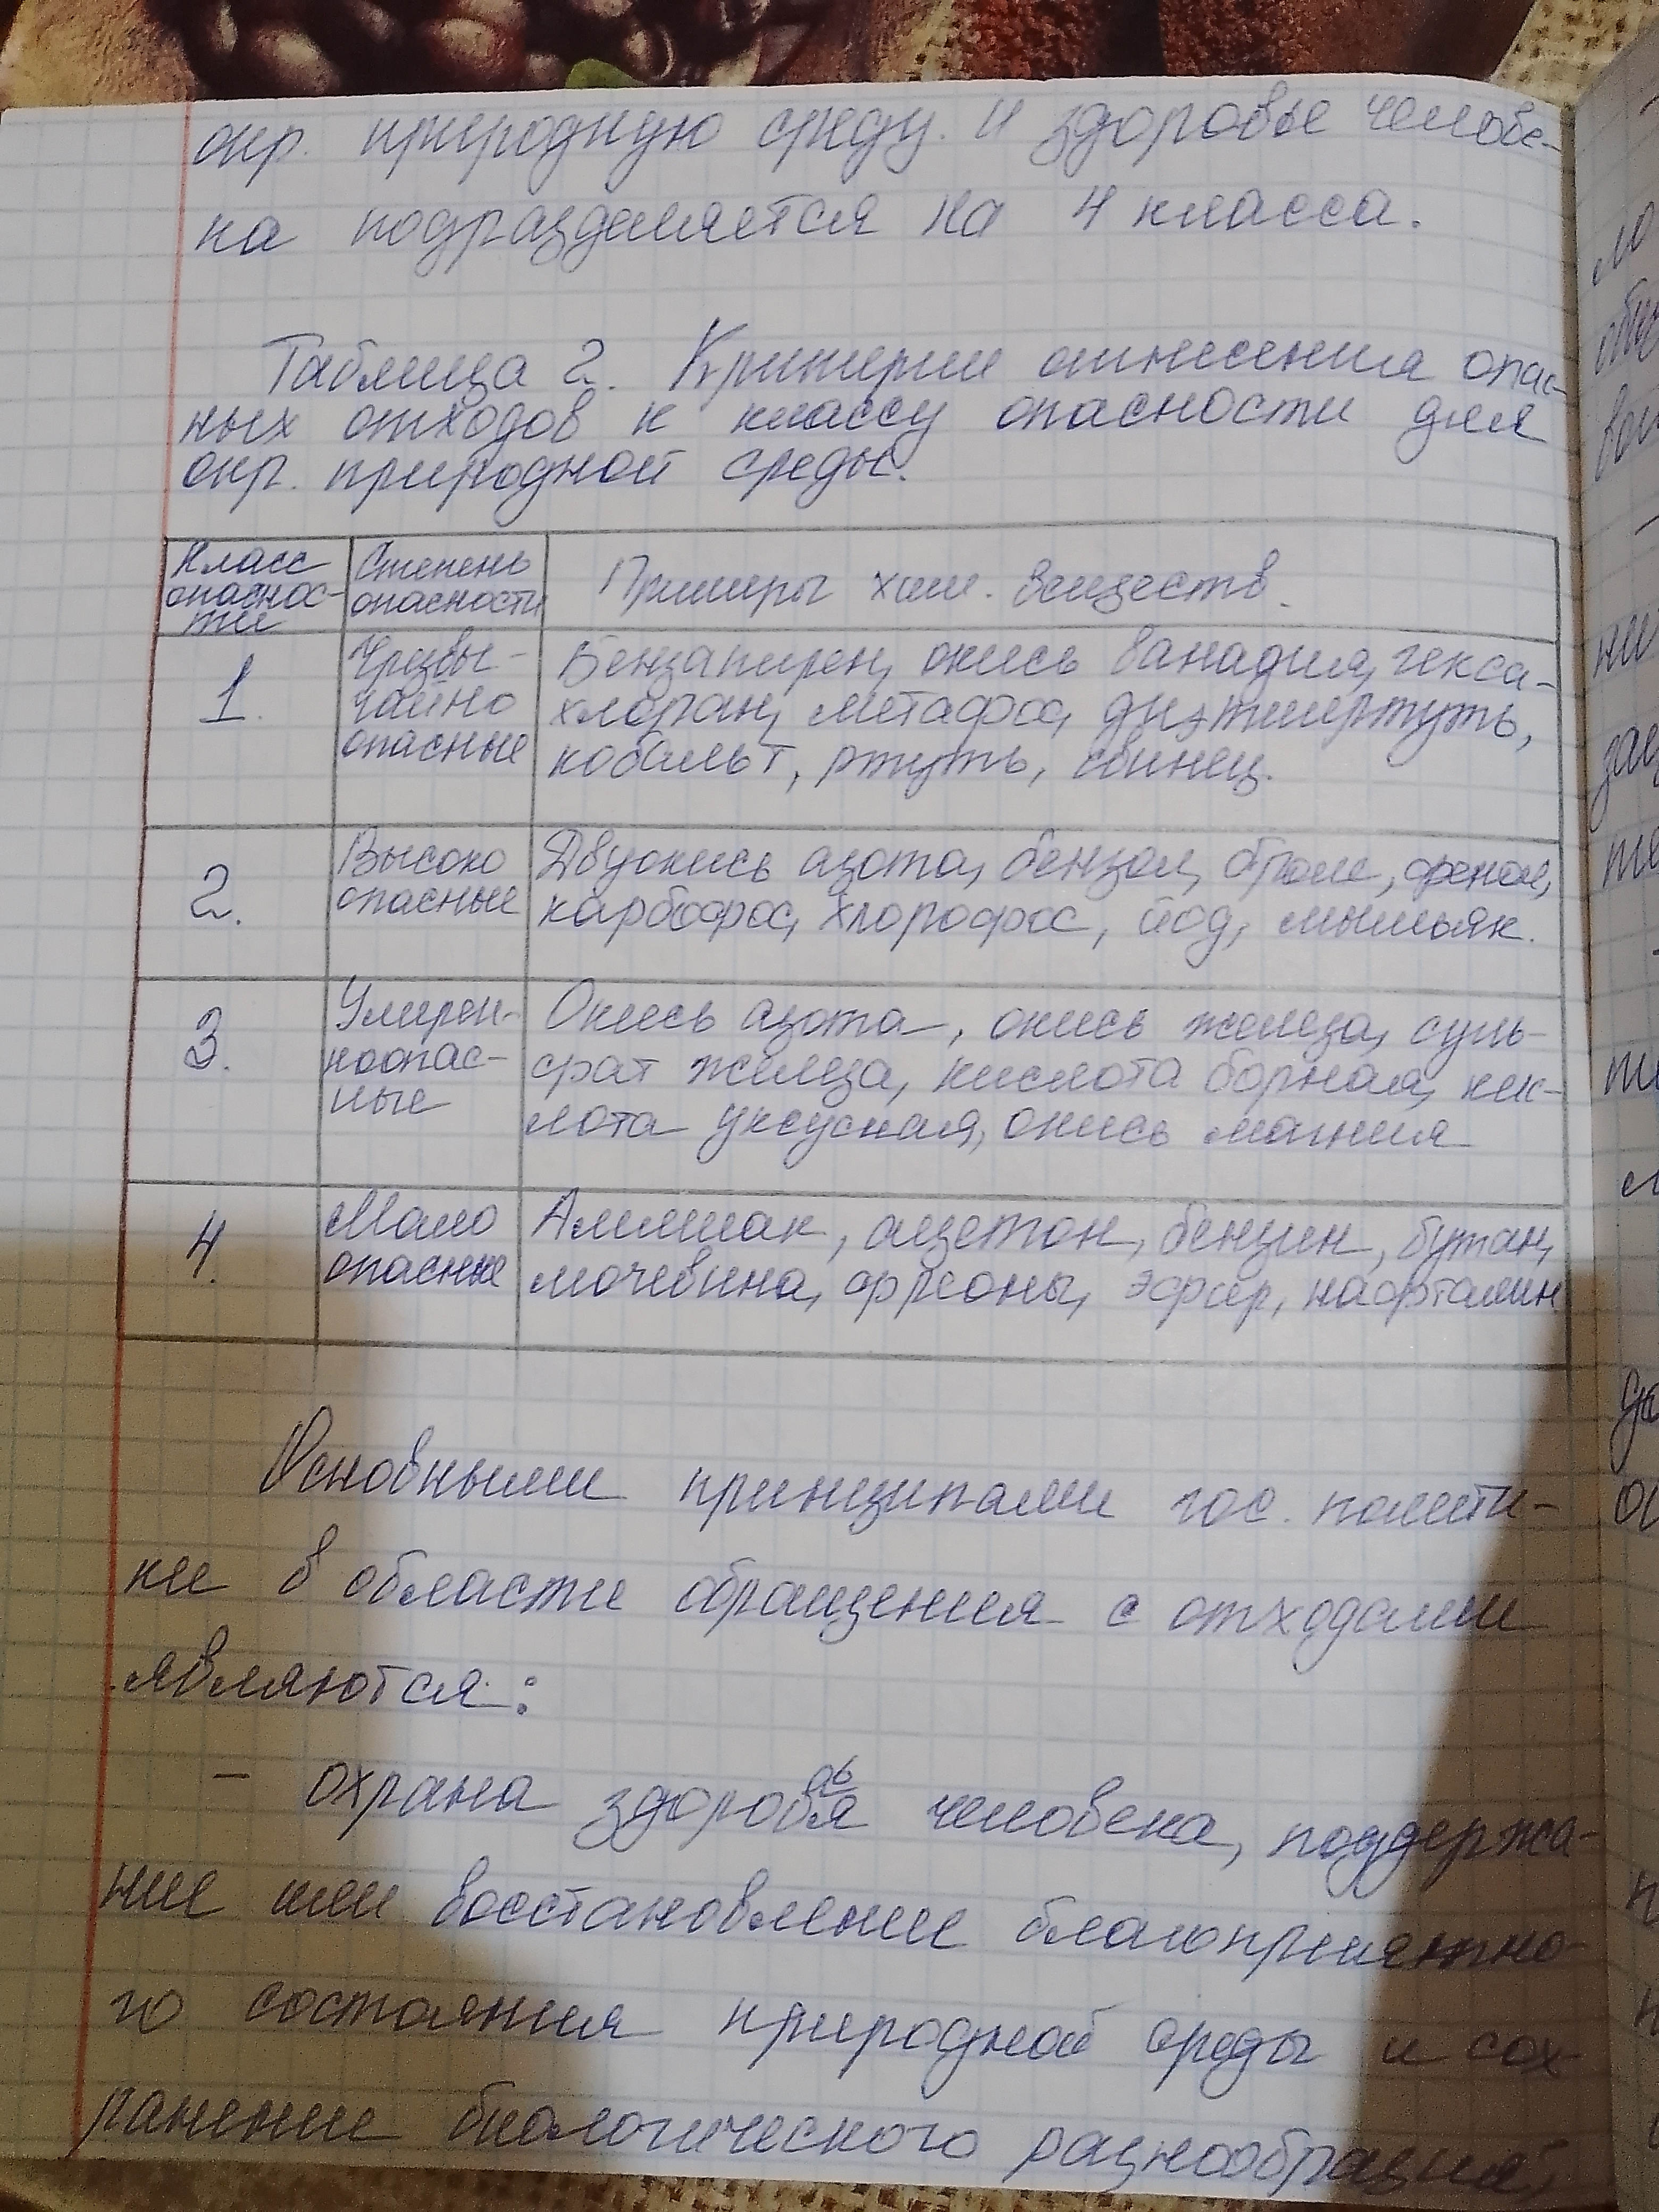 окр. природную среду и здоровье челове-
ка подразделяется на 4 класса.
Таблица 2. Критерии отнесения опас-
ных отходов к классу опасности для
окр. природной среды.
Класс
опаснос-
ти
Степень
опасности
Примеры хим. веществ.
1.
Чрезвы-
чайно
опасные
Бензапирен, окись ванадия, гекса-
хлоран, метафос, диэтилртуть,
кобальт, ртуть, свинец.
2.
Высоко
опасные
Двуокись азота, бензол, бром, фенол,
карбофос, хлорофос, йод, мышьяк.
3.
Умерен-
ноопас-
ные
Окись азота, окись железа, суль-
фат железа, кислота борная, кис-
лота уксусная, окись магния
4.
Мало
опасные
Аммиак, ацетон, бензин, бутан,
мочевина, фреоны, эфир, нафталин
Основными принципами гос. полити-
ки в области обращения с отходами
являются:
- охрана здоровья человека, поддержа-
ние или восстановление благоприятно-
го состояния природной среды и сох-
ранение биологического разнообразия,